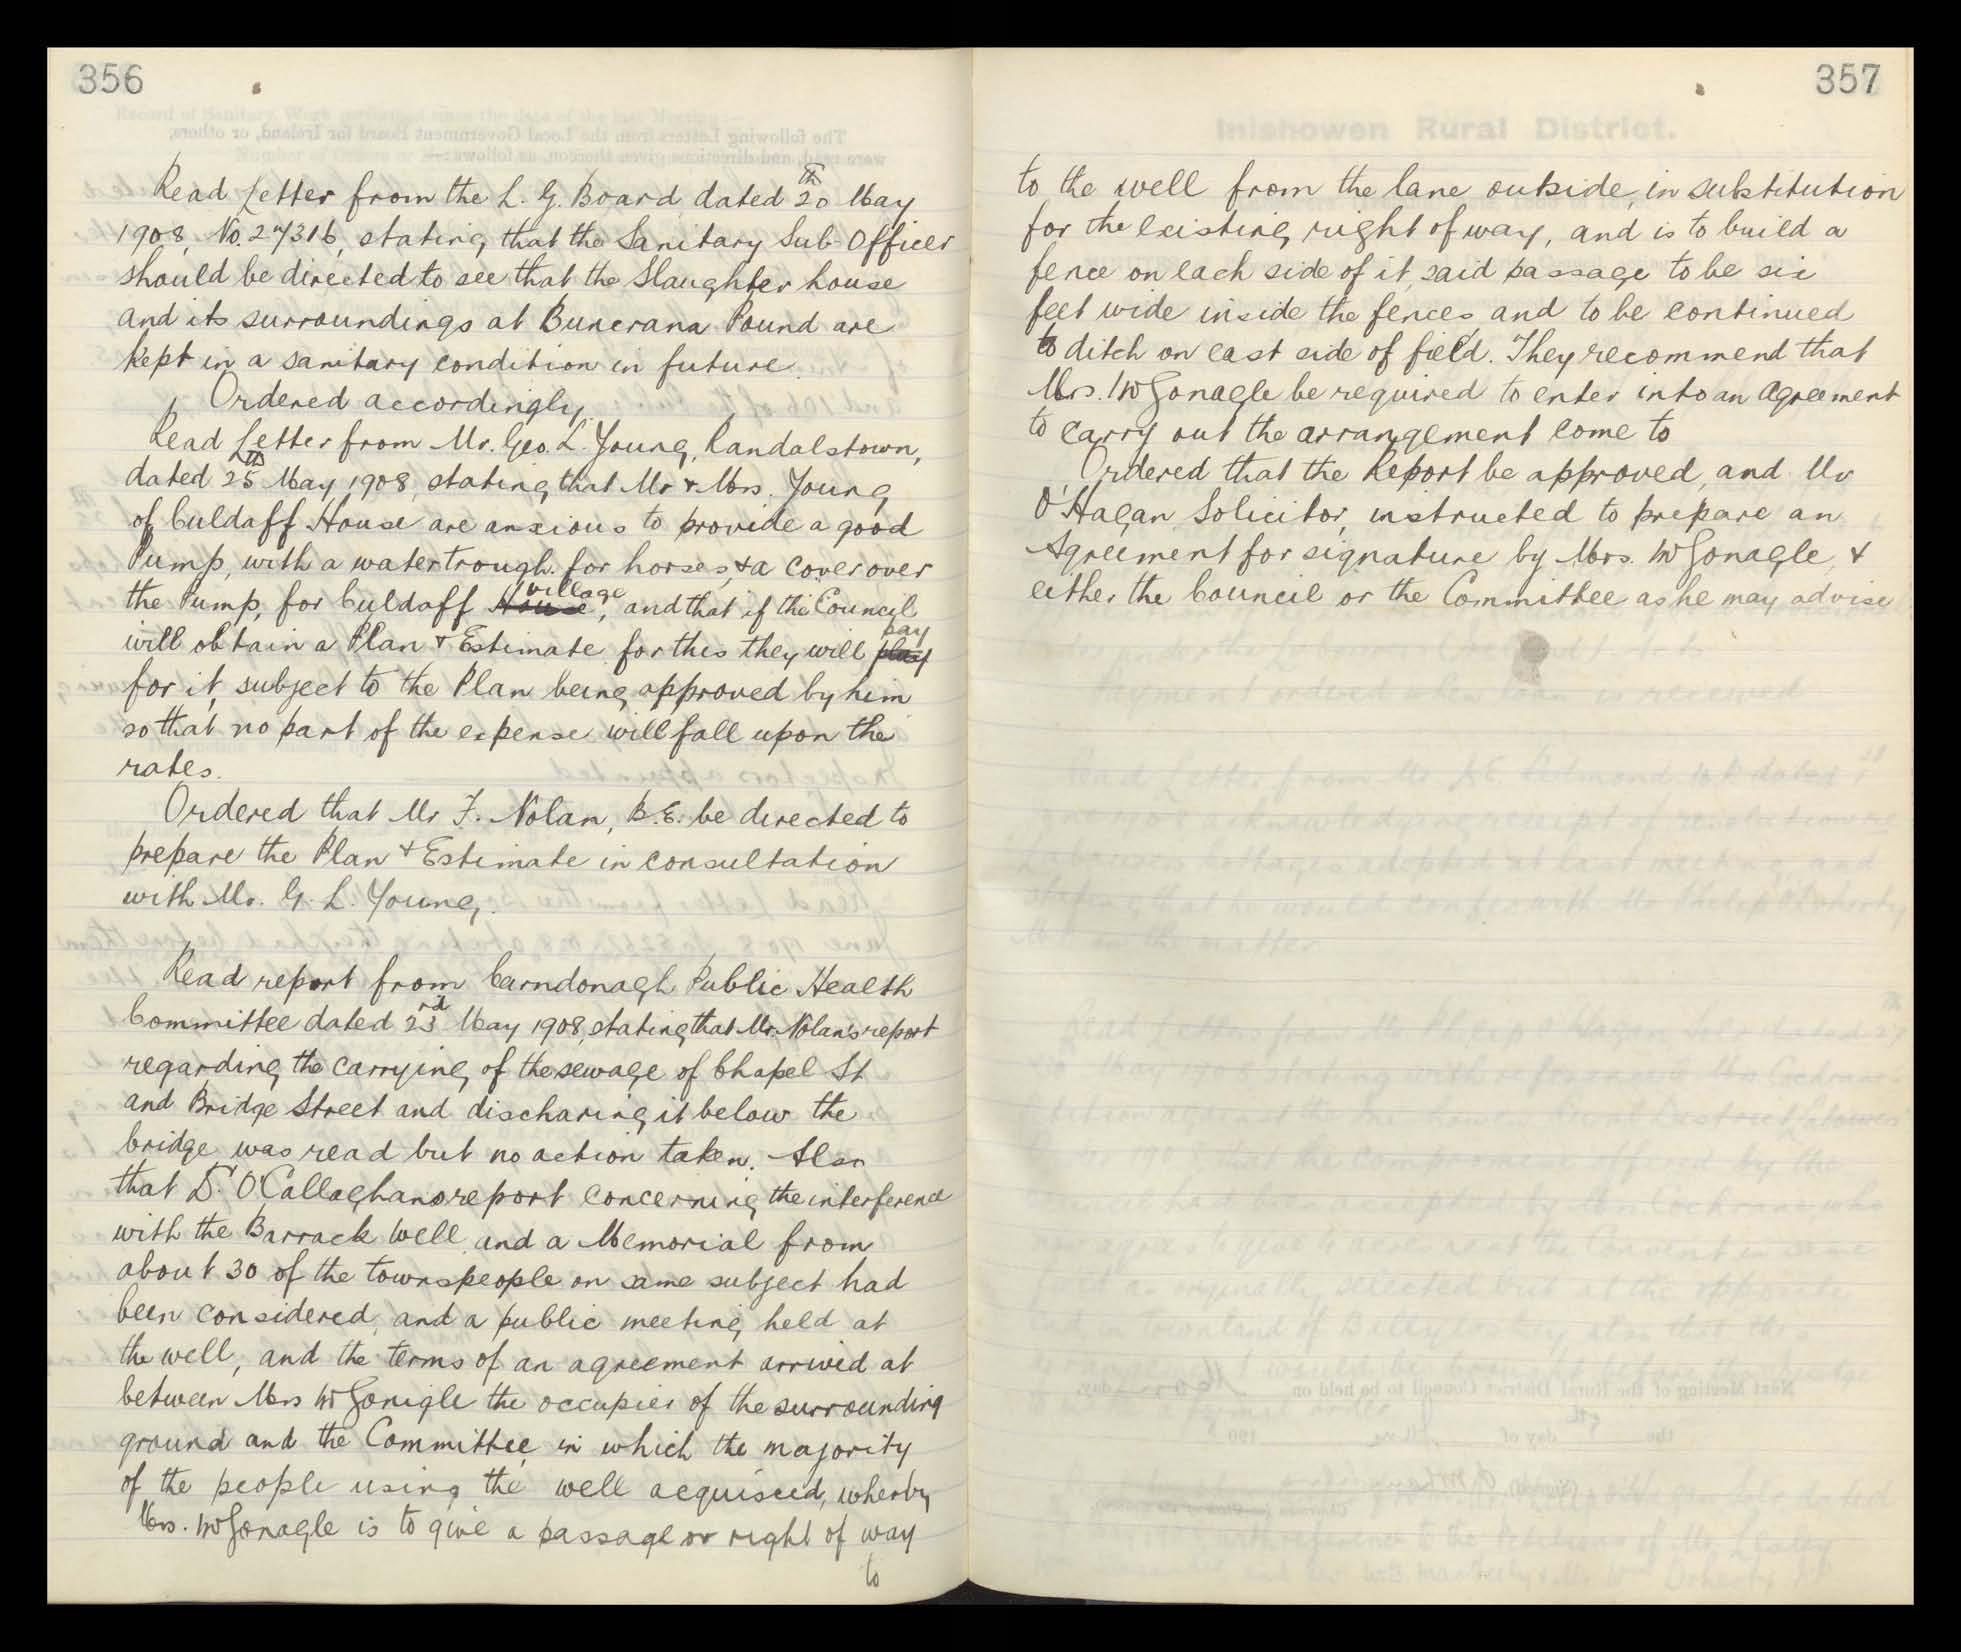 356
Read Letter from the L. G. Board dated 20th May
1908, No. 27316, stating that the Sanitary Sub-Officer
should be directed to see that the Slaughter house
and its surroundings at Buncrana Pound are
kept in a sanitary condition in future.
Ordered accordingly.
Read Letter from Mr. Geo. L. Young, Randalstown,
dated 25th May 1908, stating that Mr & Mrs. Young
of Culdaff House are anxious to provide a good
Pump, with a watertrough for horses, & a cover over
the Pump, for Culdaff House village, and that if the Council
will obtain a Plan & Estimate for this they will play pay
for it, subject to the Plan being approved by him
so that no part of the expense will fall upon the
rates.
Ordered that Mr F. Nolan, B.E. be directed to
prepare the Plan & Estimate in consultation
with Mr. G. L. Young.
Read report from Carndonagh Public Health
Committee dated 23rd May 1908, stating that Mr. Nolan's report
regarding the carrying of the sewage of Chapel St
and Bridge Street and discharing it below the
bridge was read but no action taken. Also
that Dr. O'Callaghans report concerning the interference
with the Barrack Well and a Memorial from
about 30 of the townspeople on same subject had
been considered, and a public meeting held at
the well, and the terms of an agreement arrived at
between Mrs McGonigle the occupier of the surrounding
ground and the Committee, in which the majority
of the people using the well acquisced, wherby
Mrs. McGonagle is to give a passage or right of way
to
357
Inishowen Rural District.
to the well from the lane outside, in substitution
for the existing right of way, and is to build a
fence on each side of it, said passage to be six
feet wide inside the fences and to be continued
to ditch on east side of field. They recommend that
Mrs. McGonagle be required to enter into an agreement
to carry out the arrangement come to
Ordered that the Report be approved, and Mr
O'Hagan Solicitor, instructed to prepare an
Agreement for signature by Mrs. McGonagle, &
either the Council or the Committee as he may advise